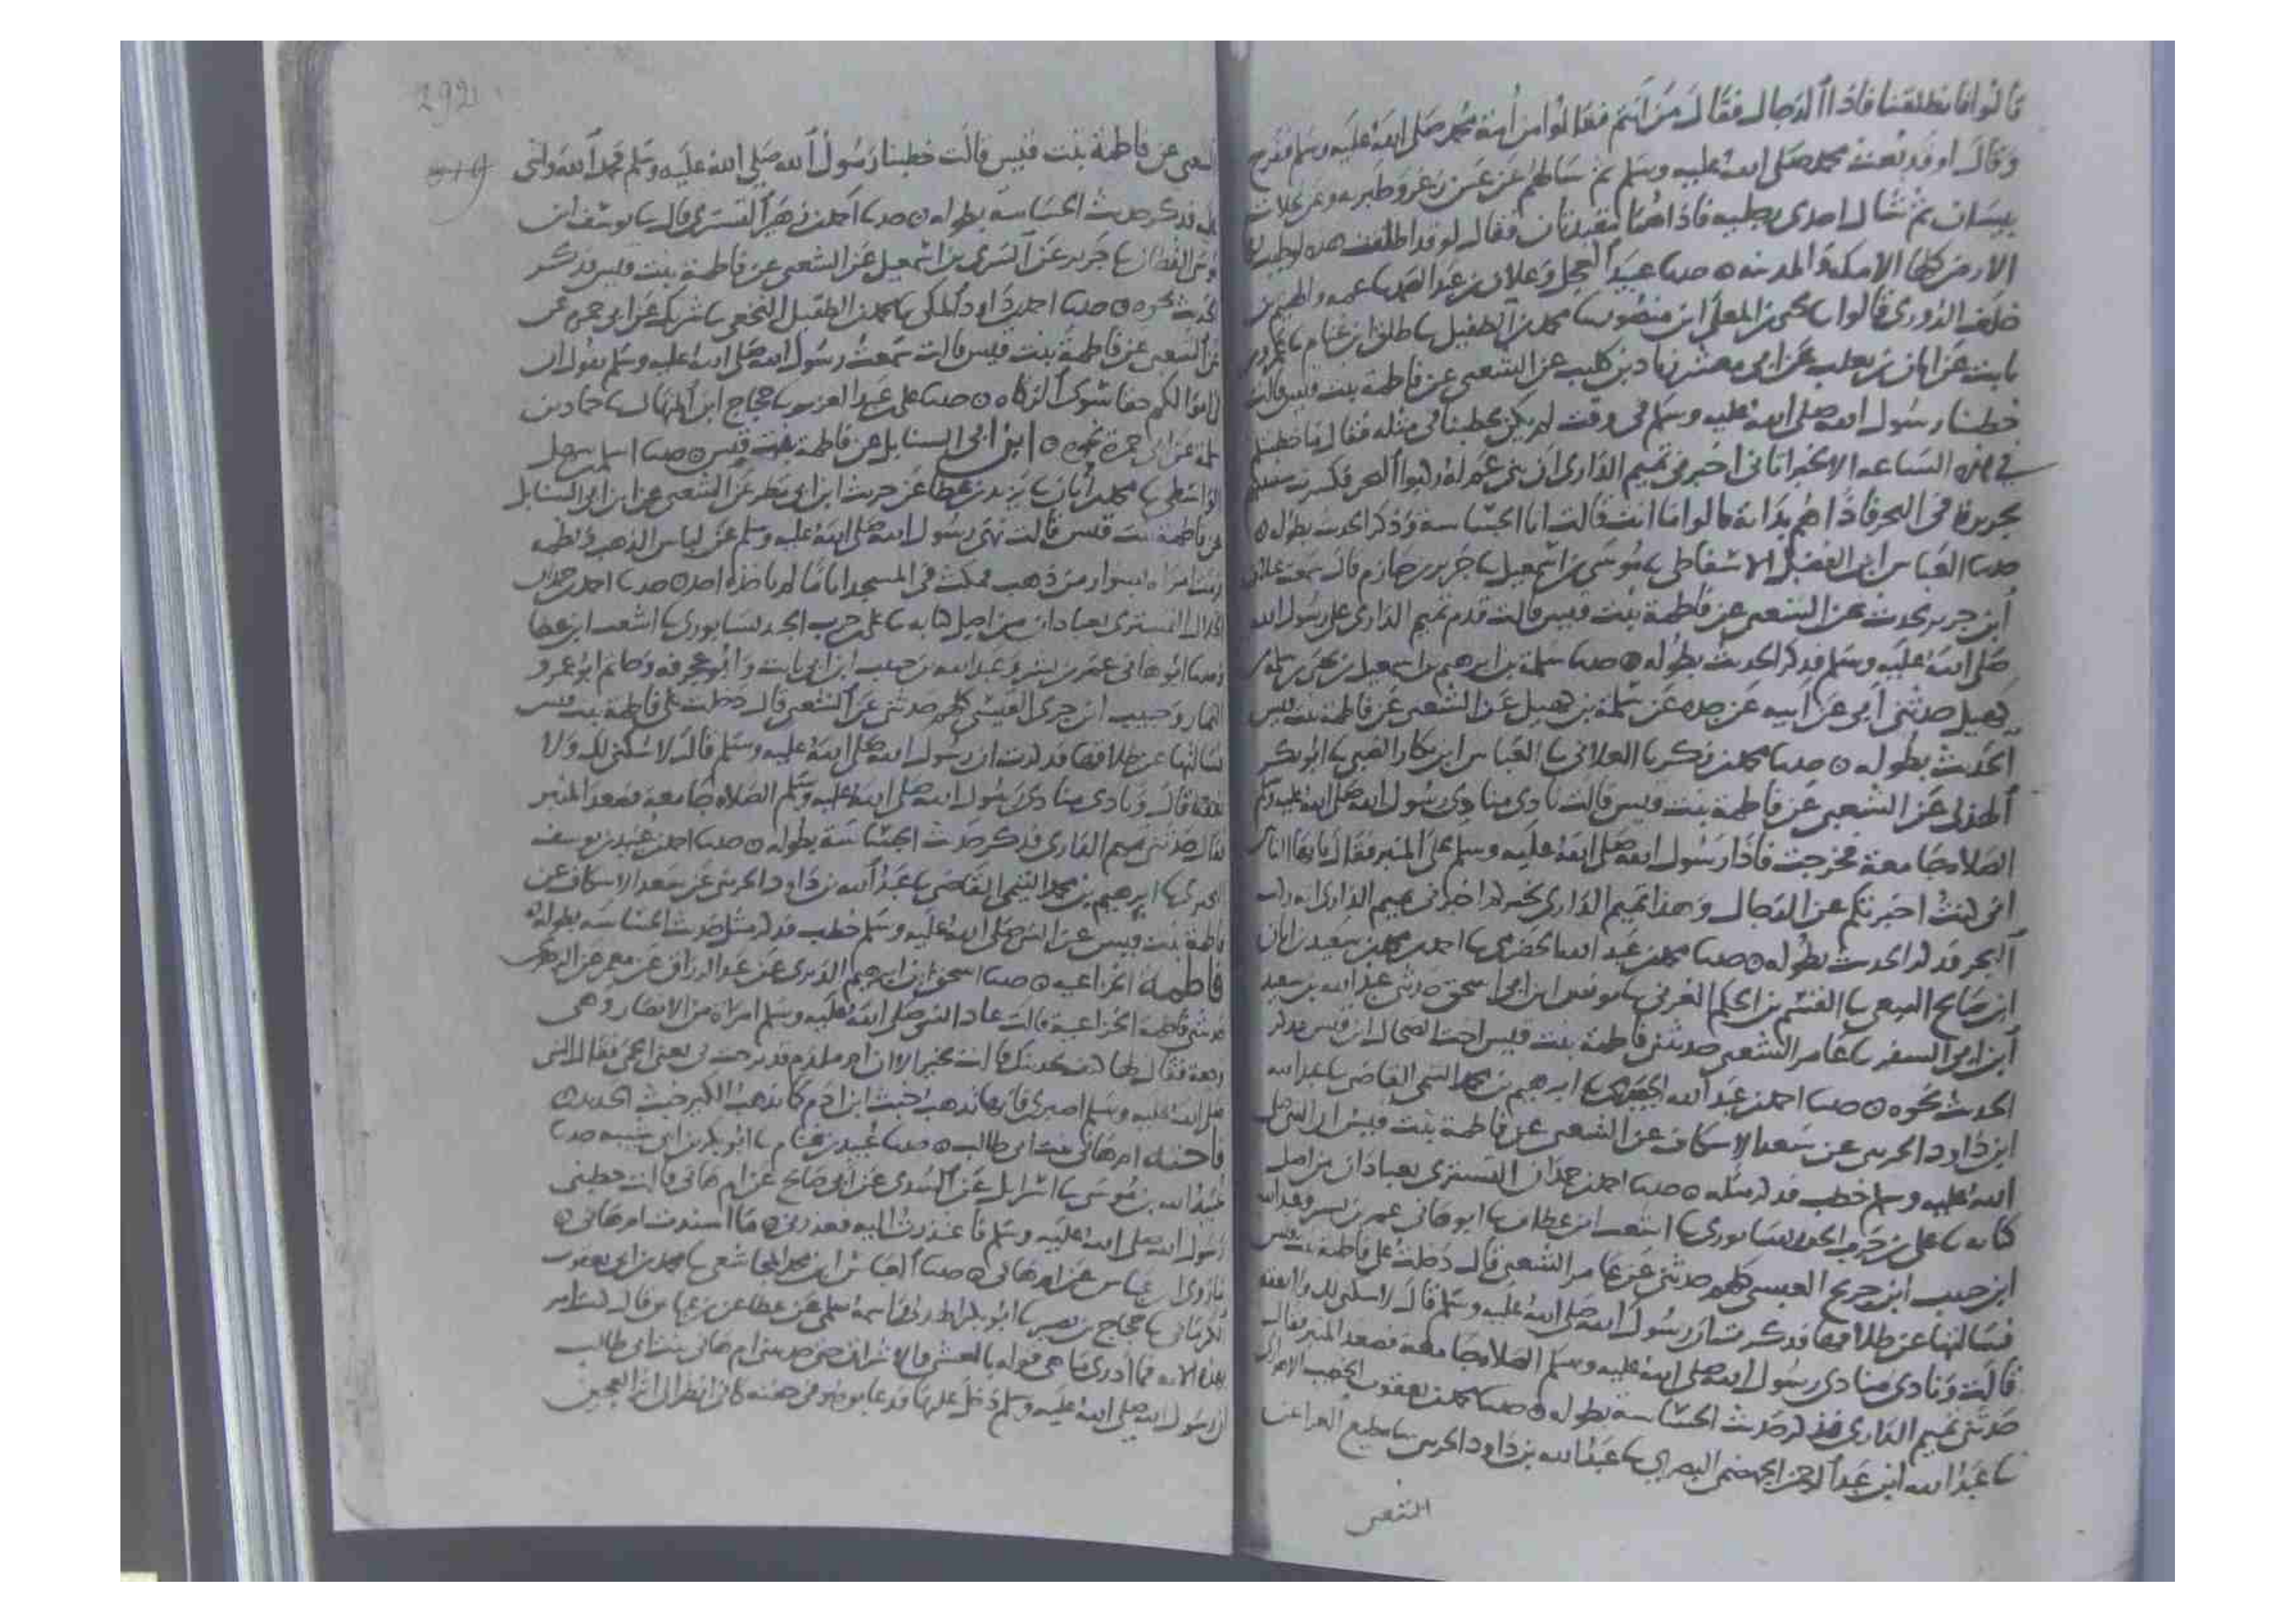 قالوا فانطلقنا فاذا الدجال فقال من انتم فقالوا من امة محمد صلى الله عليه وسلم
وقال او قد بعث محمد صلى الله عليه وسلم ثم سالهم عن عين زغر وطبريه وعن نخلات
بيسان ثم شال احدى رجليه فاذا هما مقيدتان فقال لو قد اطلقت هذه لوطيت بها
الارض كلها الا مكه والمدينه ه حدثنا عبيد العجل وعلان بن عبد الصمد
خلف الدوري قالوا يحيى بن المعلى ابن منصور محمد بن الطفيل طلق ابن غنام
ثابت عن ابان بن تغلب عن ابي معشر زياد بن كليب عن الشعبي عن فاطمة بنت قيس قالت
خطبنا رسول الله صلى الله عليه وسلم في وقت لم يكن يخطبنا في مثله فقال ما خطبتكم
في هذه الساعه الا بخبر اتاني اخبرني تميم الداري ان بني عم له ركبوا البحر فكسرت سفينتهم
بجزيرة في البحر فاذا هم بدابة قالوا ما انت قالت انا الجساسة وذكر الحديث بطوله ه
حدثنا العباس ابن الفضل الاسفاطي موسى بن اسمعيل جرير بن حازم قال سمعت غيلان
ابن جرير يحدث عن الشعبي عن فاطمة بنت قيس قالت قدم تميم الداري على رسول الله
صلى الله عليه وسلم فذكر الحديث بطوله ه حدثنا سلمة بن ابرهيم بن اسمعيل بن يحيى بن سلمة بن
كهيل حدثني ابي عن ابيه عن جده عن سلمة بن كهيل عن الشعبي عن فاطمة بنت قيس
الحديث بطوله ه حدثنا محمد بن زكريا الغلابي العباس ابن بكار الضبي ابو بكر
الهذلي عن الشعبي عن فاطمة بنت قيس قالت نادى منادي رسول الله صلى الله عليه وسلم
الصلاة جامعة فخرجت فاذا رسول الله صلى الله عليه وسلم على المنبر فقال يا ايها الناس
اني كنت اخبرتكم عن الدجال وهذا تميم الداري اخبرني تميم الداري انه ركب
البحر فذكر الحديث بطوله ه حدثنا محمد بن عبد الله الحضرمي احمد بن محمد بن سعيد بن ابان
ابن صالح القسم بن الحكم العرني يونس ابن ابي اسحق حدثني عبد الله بن سعيد
ابن ابي السفر عامر الشعبي حدثتني فاطمة بنت قيس اخت الضحاك ابن قيس فذكر
الحديث نحوه ه حدثنا احمد بن عبد الله ابرهيم بن محمد التيمي القاضي عبد الله
ابن داود الخريبي عن سعد الاسكاف عن الشعبي عن فاطمة بنت قيس ان النبي صلى
الله عليه وسلم خطب فذكر مثله ه حدثنا احمد بن حمدان التستري بعبادان من اصل
كتابه علي بن حرب الجنديسابوري اشعث ابن عطاف ابو هاني عمر بن بشر وعبد الله
ابن حبيب ابن جريج العبسي كلهم حدثني عن عامر الشعبي قال دخلت على فاطمة بنت قيس
فسالتها عن طلاقها فذكرت ان رسول الله صلى الله عليه وسلم قال لا سكنى لك ولا نفقه
قالت ونادى منادي رسول الله صلى الله عليه وسلم الصلاة جامعة فصعد المنبر فقال
حدثني تميم الداري فذكر حديث الجساسة بطوله ه حدثنا محمد بن يعقوب الخطيب الاهوازي
عبد الله ابن عبد الرحمن الجهضمي البصري عبد الله بن داود الخريبي مطيع الغزا عن
الشعبي
292
الشعبي عن فاطمة بنت قيس قالت خطبنا رسول الله صلى الله عليه وسلم فحمد الله واثنى
عليه فذكر حديث الجساسة بطوله ه حدثنا احمد بن زهير التستري قال يوسف ابن
موسى القطان جرير عن السري بن اسمعيل عن الشعبي عن فاطمة بنت قيس فذكر
الحديث نحوه ه حدثنا احمد بن داود المكي محمد بن الطفيل النخعي شريك عن ابي حمزة عن
عن الشعبي عن فاطمة بنت قيس قالت سمعت رسول الله صلى الله عليه وسلم يقول ان
في اموالكم حقا سوى الزكاه ه حدثنا علي عبد العزيز حجاج ابن المنهال حماد بن
سلمة عن ابي حمزة نحوه ه ابن ابي السنابل عن فاطمة بنت قيس ه حدثنا اسلم بن سهل
الواسطي محمد بن ابان يزيد بن عطا عن حريث ابن ابي مطر عن الشعبي عن ابن ابي السنابل
عن فاطمة بنت قيس قالت نهى رسول الله صلى الله عليه وسلم عن لباس الذهب
امراة بسوار من ذهب فمكث في المسجد اياما لم ياخذه احد ه حدثنا احمد بن حمدان
التستري بعبادان من اصل كتابه علي بن حرب الجنديسابوري اشعث ابن عطاف
حدثنا ابو هاني عمر بن بشر وعبد الله بن حبيب ابن ابي ثابت وابو عرفه وحاتم ابو عمرو
وحبيب ابن جرى العبسي كلهم حدثني عن الشعبي قال دخلت على فاطمة بنت قيس
فسالتها عن طلاقها فذكرت ان رسول الله صلى الله عليه وسلم قال لا سكنى لك ولا
نفقة قال ونادى منادي رسول الله صلى الله عليه وسلم الصلاه جامعة فصعد المنبر
فقال حدثني تميم الداري فذكر حديث الجساسة بطوله ه حدثنا احمد بن عبيد بن يوسف
ابرهيم بن محمد التيمي القاضي عبد الله بن داود الخريبي عن سعد الاسكاف عن
فاطمة بنت قيس عن النبي صلى الله عليه وسلم خطب فذكر مثل حديث الجساسة بطوله ه
فاطمة الخزاعيه ه حدثنا اسحق بن ابرهيم الدبري عن عبد الرزاق عن معمر عن الزهري
حدثتني فاطمة الخزاعية قالت عاد النبي صلى الله عليه وسلم امراة من الانصار وهي
وجعة فقال لها كيف تجدينك قالت بخير الا ان ام ملدم قد برحت بي يعني الحمى فقال النبي
صلى الله عليه وسلم اصبري فانها تذهب خبث ابن ادم كما يذهب الكير خبث الحديد ه
فاخته ام هاني بنت ابي طالب ه حدثنا عبيد بن غنام ابو بكر بن ابي شيبه حدثنا
عبيد الله بن موسى اسرايل عن السدي عن ابي صالح عن ام هاني قالت خطبني
رسول الله صلى الله عليه وسلم فاعتذرت اليه فعذرني ه ما اسندت ام هاني ه
ما روى ابن عباس عن ام هاني ه حدثنا العباس ابن محمد المجاشعي محمد بن ابي يعقوب
الكرماني حجاج بن نصير ابو بكر الهذلي عن عطا عن ابن عباس قال كنت امر
بهذه الايه فما ادري ما هي قوله بالعشي والاشراق حتى حدثتني ام هاني بنت ابي طالب
ان رسول الله صلى الله عليه وسلم دخل عليها فدعا بوضو في جفنة كاني انظر الى اثر العجين